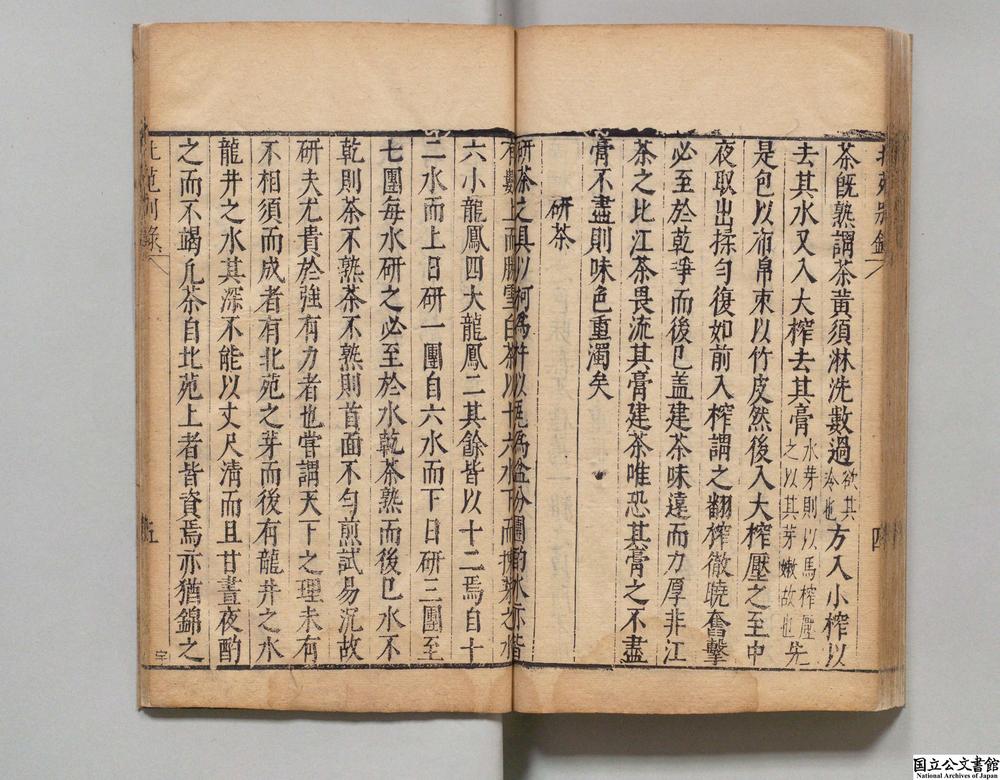 茶既熟謂茶黃須淋洗數過欲其冷也方入小榨以
去其水又入大榨去其膏水芽則以馬榨壓之以其芽嫩故也先
是包以布帛束以竹皮然後入大榨壓之至中
夜取出揉勻復如前入榨謂之翻榨徹曉奮擊
必至於乾淨而後已盖建茶味遠而力厚非江
茶之比江茶畏流其膏建茶唯恐其膏之不盡
膏不盡則味色重濁矣
研茶
研茶之具以柯爲杵以瓦爲盆分團酌水亦皆
有數上而勝雪白茶以十六水下而揀芽之水
六小龍鳳四大龍鳳二其餘皆以十二焉自十
二水而上日研一團自六水而下日研三團至
七團每水研之必至於水乾茶熟而後已水不
乾則茶不熟茶不熟則首面不勻煎試易沉故
研夫尤貴於強有力者也嘗謂天下之理未有
不相須而成者有北苑之芽而後有龍井之水
龍井之水其深不能以丈尺清而且甘晝夜酌
之而不竭凡茶自北苑上者皆資焉亦猶錦之
北苑別錄
四
北苑別錄
五
国立公文書館
National Archives of Japan